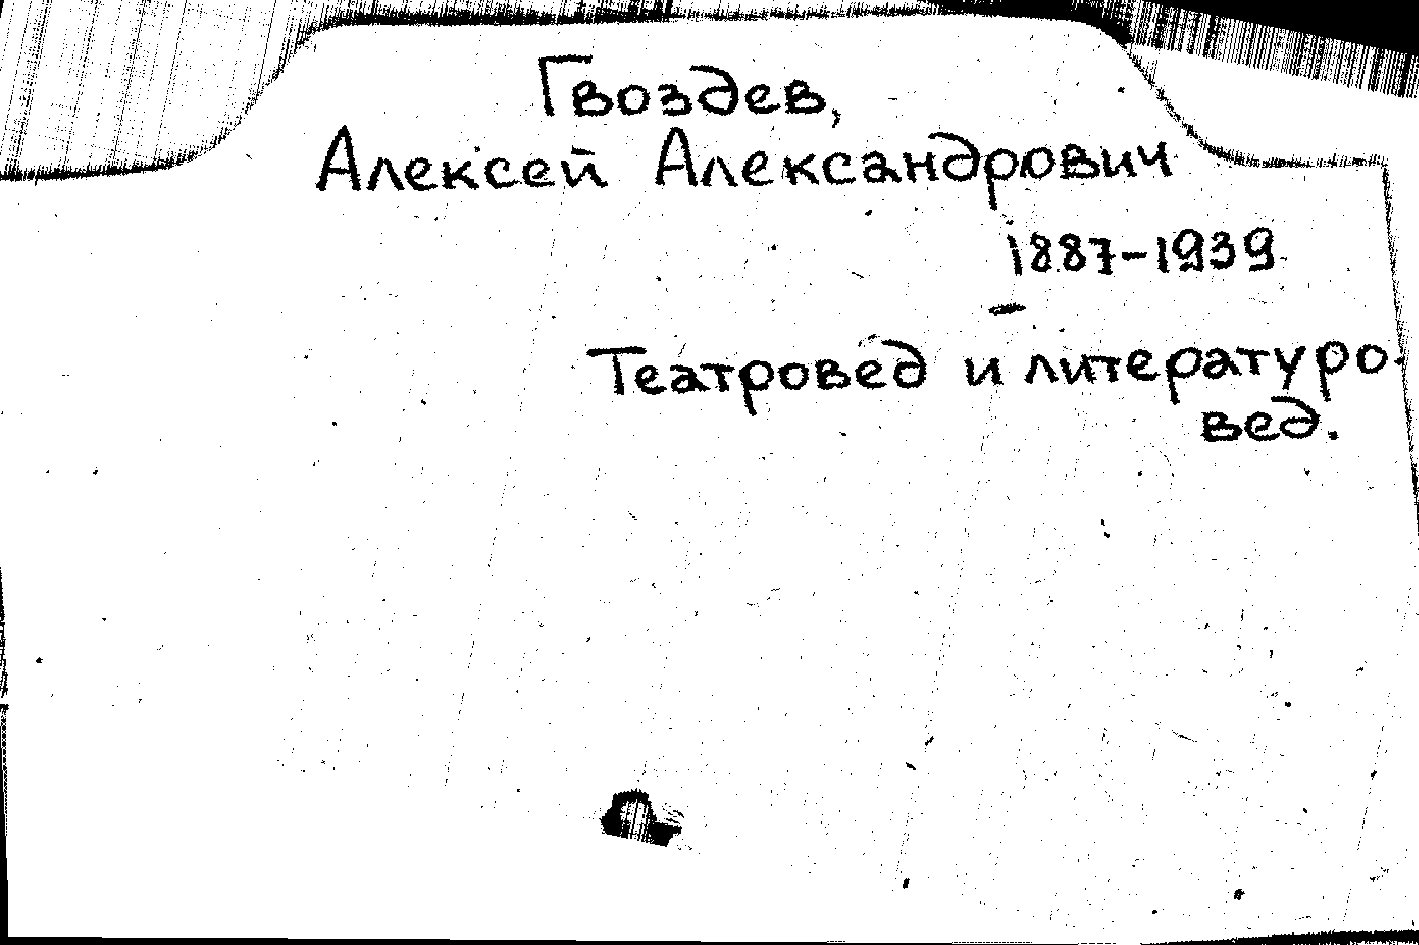 Гвоздев,
Алексей Александрович
1887-1939
Театровед и литературо-
вед.